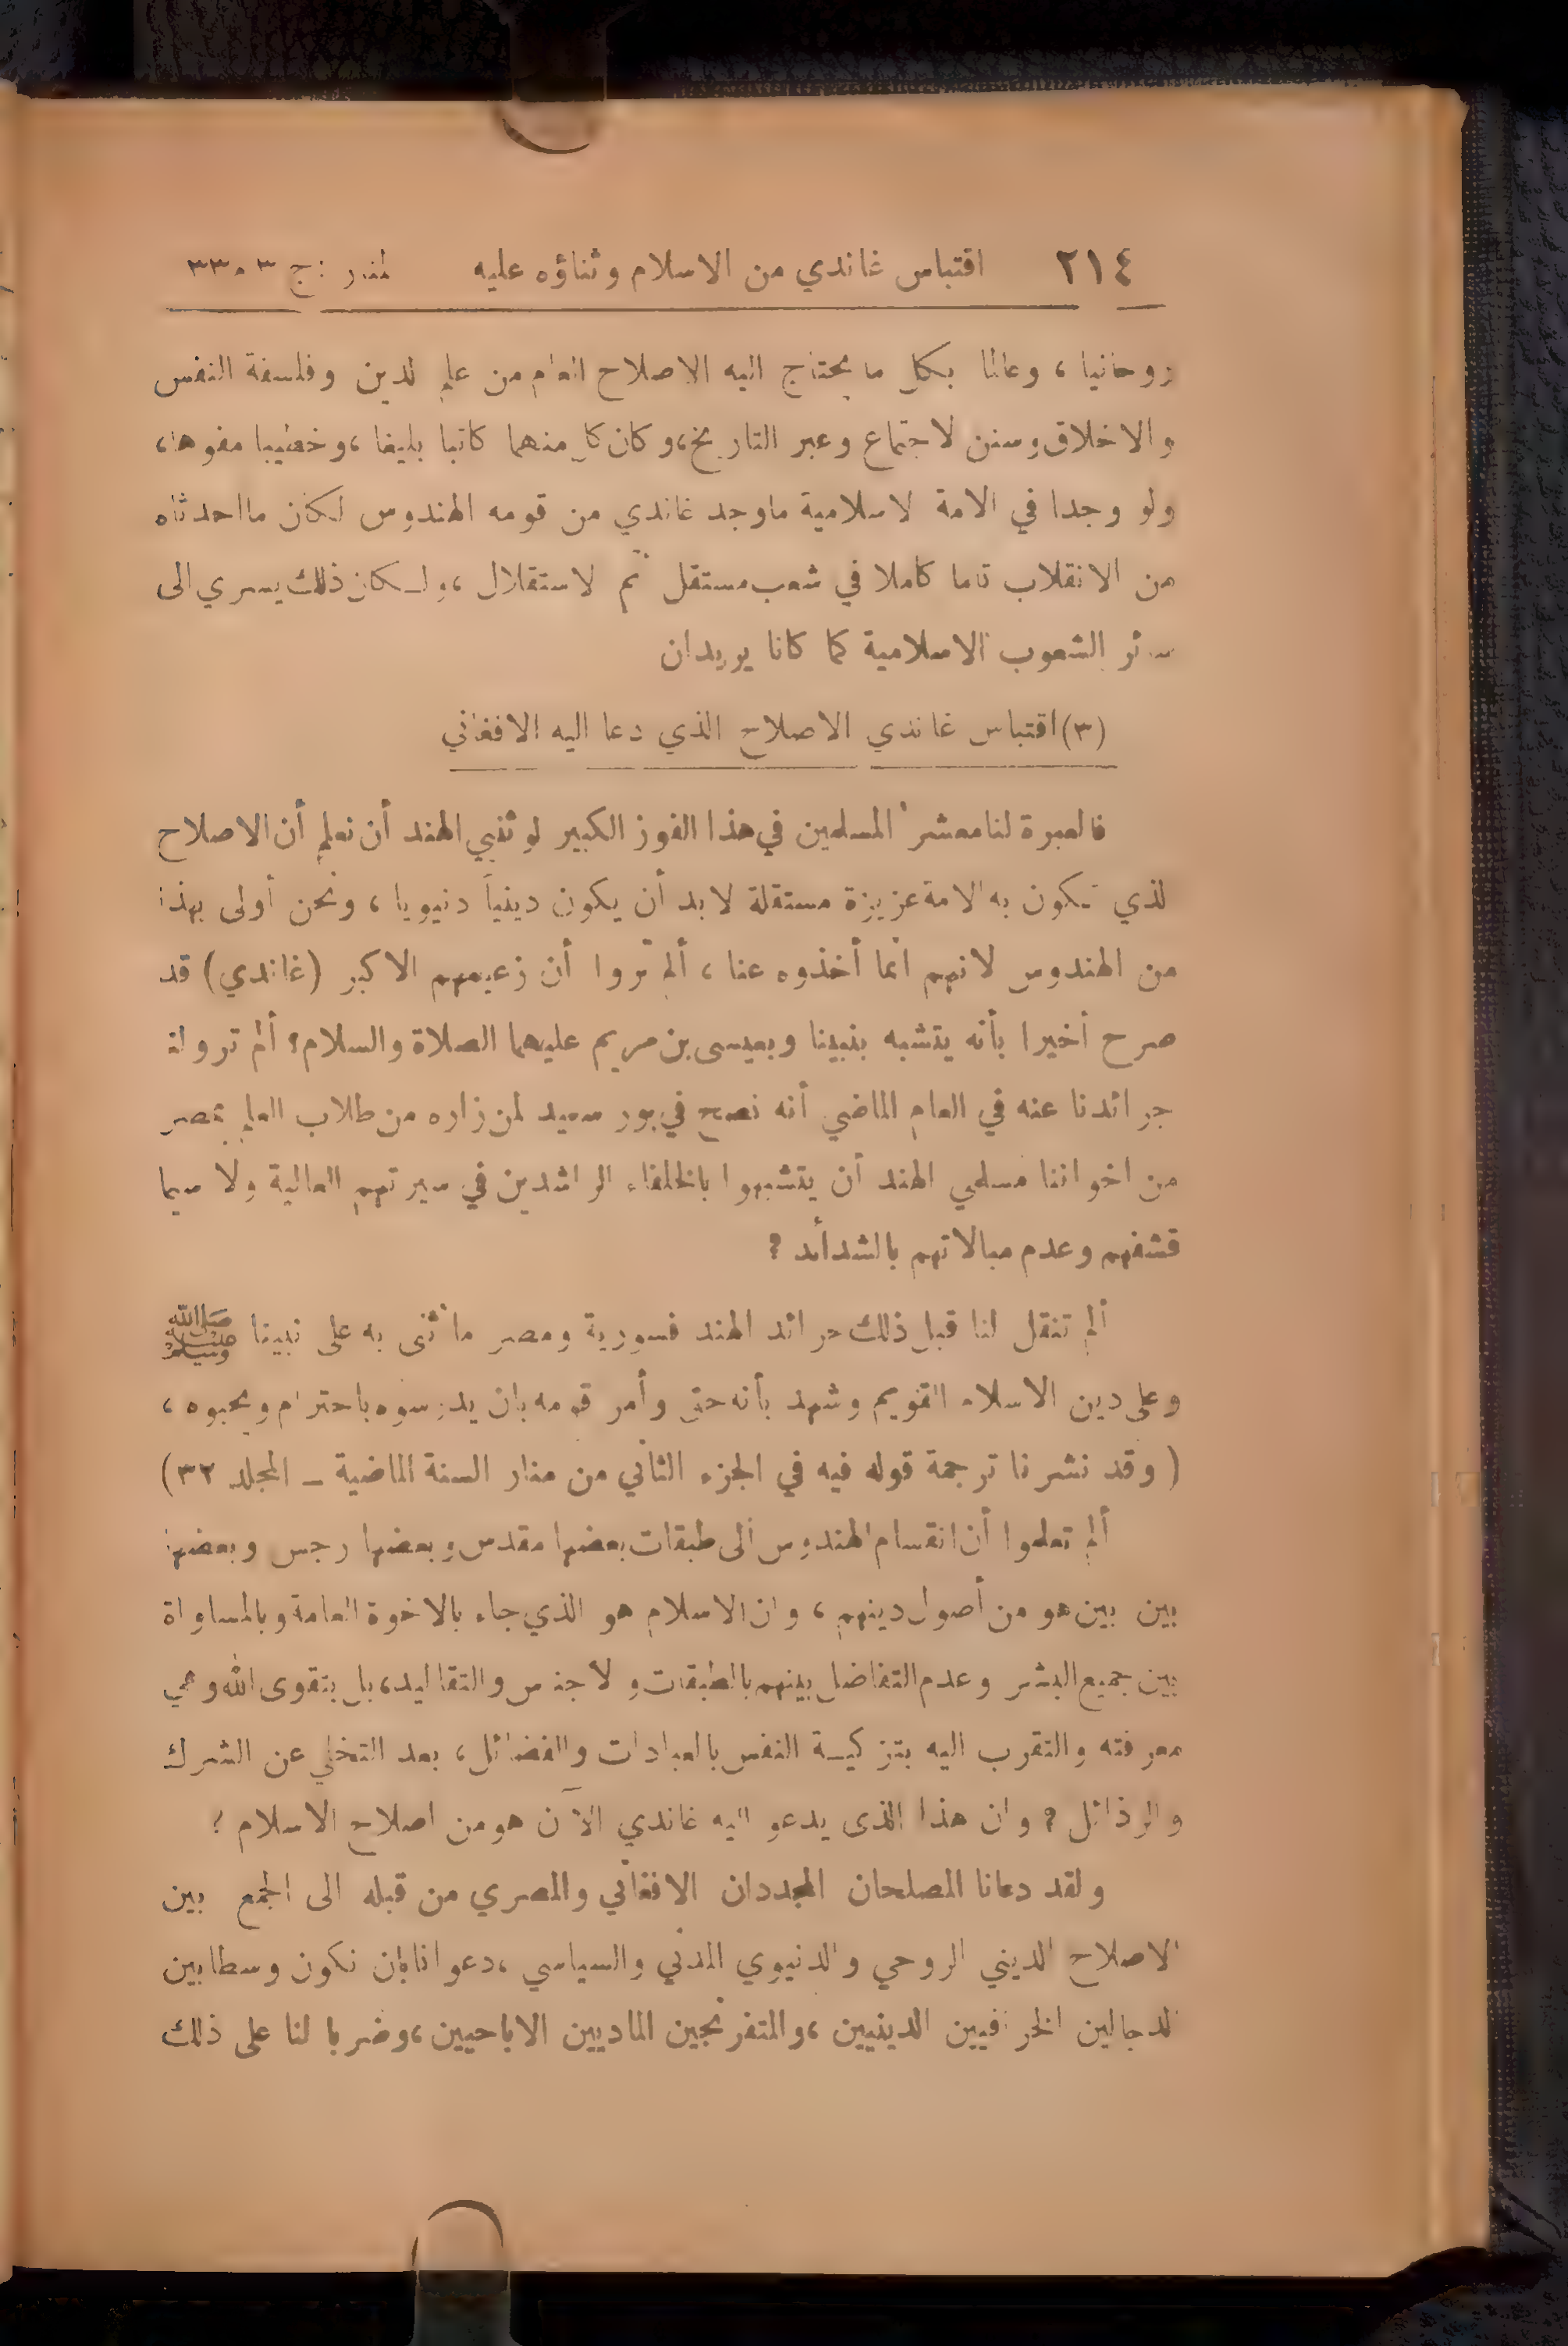 ٢١٤ اقتباس غاندي من الاسلام وثناؤه عليه المنار : ج ٣ م ٣٣
روحانيا ، وعالما بكل ما يحتاج اليه الاصلاح العام من علم الدين وفلسفة النفس
والاخلاق وسنن الاجتماع وعبر التاريخ ، وكان كل منهما كاتبا بليغا ، وخطيبا مفوها ،
ولو وجدا في الامة الاسلامية ما وجد غاندي من قومه الهندوس لكان ما احدثاه
من الانقلاب تاما كاملا في شعب مستقل تم الاستقلال ، ولكان ذلك يسري الى
سائر الشعوب الاسلامية كما كانا يريدان
(٣) اقتباس غاندي الاصلاح الذي دعا اليه الافغاني
فالعبرة لنا معشر المسلمين في هذا الفوز الكبير لوثنيي الهند أن نعلم أن الاصلاح
الذي تكون به الامة عزيزة مستقلة لا بد أن يكون دينياً دنيويا ، ونحن أولى بهذا
من الهندوس لانهم انما أخذوه عنا ، ألم تروا أن زعيمهم الاكبر (غاندي) قد
صرح أخيرا بأنه يتشبه بنبينا وبعيسى بن مريم عليهما الصلاة والسلام؟ ألم ترو لنا
جرائدنا عنه في العام الماضي أنه نصح في بور سعيد لمن زاره من طلاب العلم بمصر
من اخواننا مسلمي الهند أن يتشبهوا بالخلفاء الراشدين في سيرتهم العالية ولا سيما
قشفهم وعدم مبالاتهم بالشدائد ؟
ألم تنقل لنا قبل ذلك جرائد الهند فسورية ومصر ما أثنى به على نبينا ﷺ
وعلى دين الاسلام القويم وشهد بأنه حق وأمر قومه بان يدرسوه باحترام ويحبوه ،
( وقد نشرنا ترجمة قوله فيه في الجزء الثاني من منار السنة الماضية ـ المجلد ٣٢)
ألم تعلموا أن انقسام الهندوس الى طبقات بعضها مقدس وبعضها رجس وبعضها
بين بين هو من أصول دينهم ، وان الاسلام هو الذي جاء بالاخوة العامة وبالمساواة
بين جميع البشر وعدم التفاضل بينهم بالطبقات والاجناس والتقاليد ، بل بتقوى الله وهي
معرفته والتقرب اليه بتزكيـة النفس بالعبادات والفضائل ، بعد التخلي عن الشرك
والرذائل ؟ وان هذا الذى يدعو اليه غاندي الآن هو من اصلاح الاسلام ؟
ولقد دعانا المصلحان المجددان الافغاني والمصري من قبله الى الجمع بين
الاصلاح الديني الروحي والدنيوي المدني والسياسي ، دعوانا بان نكون وسطا بين
الدجالين الخرافيين الدينيين ، والمتفرنجين الماديين الاباحيين ، وضربا لنا على ذلك